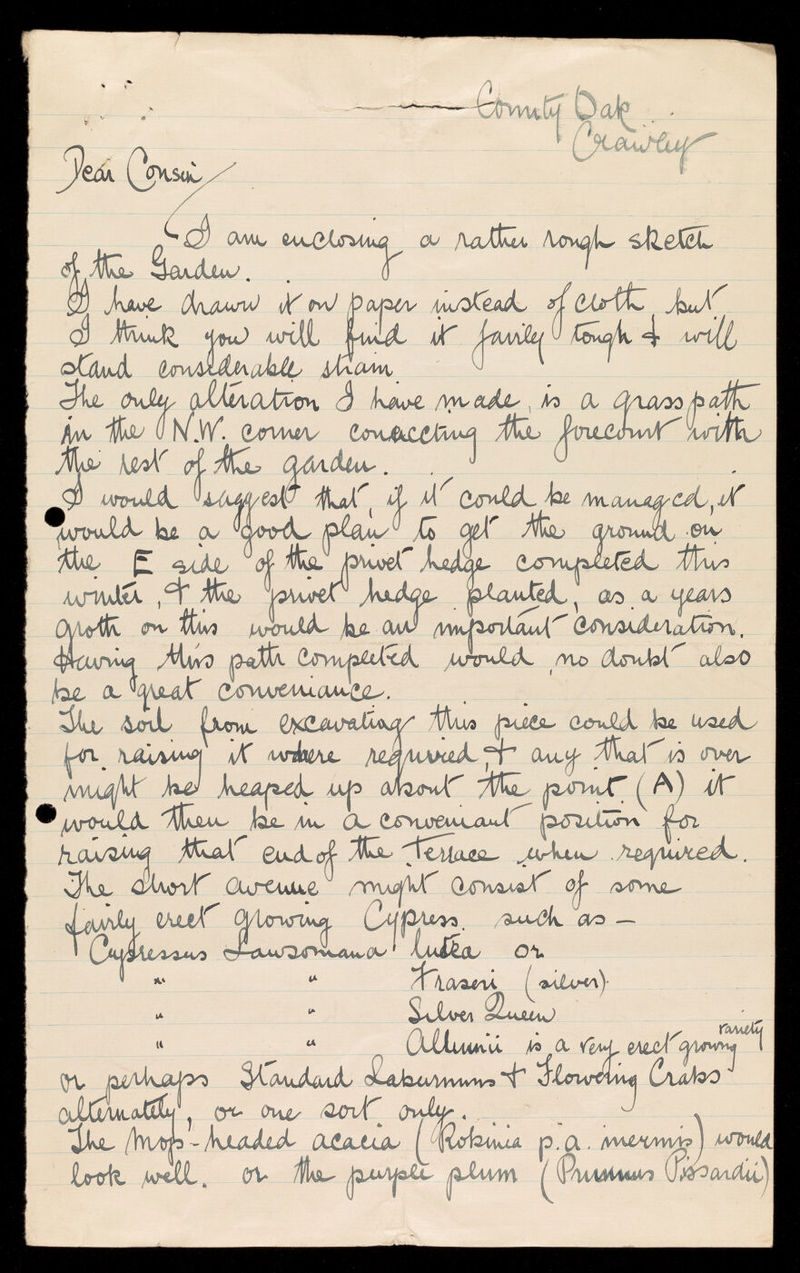 County Oak
Crawley
Dear Cousin
I am enclosing a rather rough sketch
of the Garden.
I have drawn it on paper instead of cloth, but
I think you will find it fairly tough & will
stand considerable strain
The only alteration I have made, is a grass path
in the N.W. corner connecting the forecourt with
the rest of the garden.
I would suggest that, if it could be managed, it
would be a good plan to get the ground on
the E side of the privet hedge completed this
winter, & the privet hedge planted, as a years
groth on this would be an important consideration.
Having this path completed would, no doubt also
be a great conveniance.
The soil from excavating this piece could be used
for raising it where required, & any that is over
might be heaped up about the point (A) it
would then be in a conveniant position for
raising that end of the Terrace when required.
The short avenue might consist of some
fairly erect growing Cypress. such as —
Cupressus Lawsoniana lutea or
" " Fraseri (silver)
" " Silver Queen
" " Allumii is a very erect growing variety
or perhaps Standard Laburnums & Flowering Crabs
alternately, or one sort only.
The Mop-headed acacia (Robinia p.a. inermis) would
look well. or the purple plum (Prunus Pissardii)